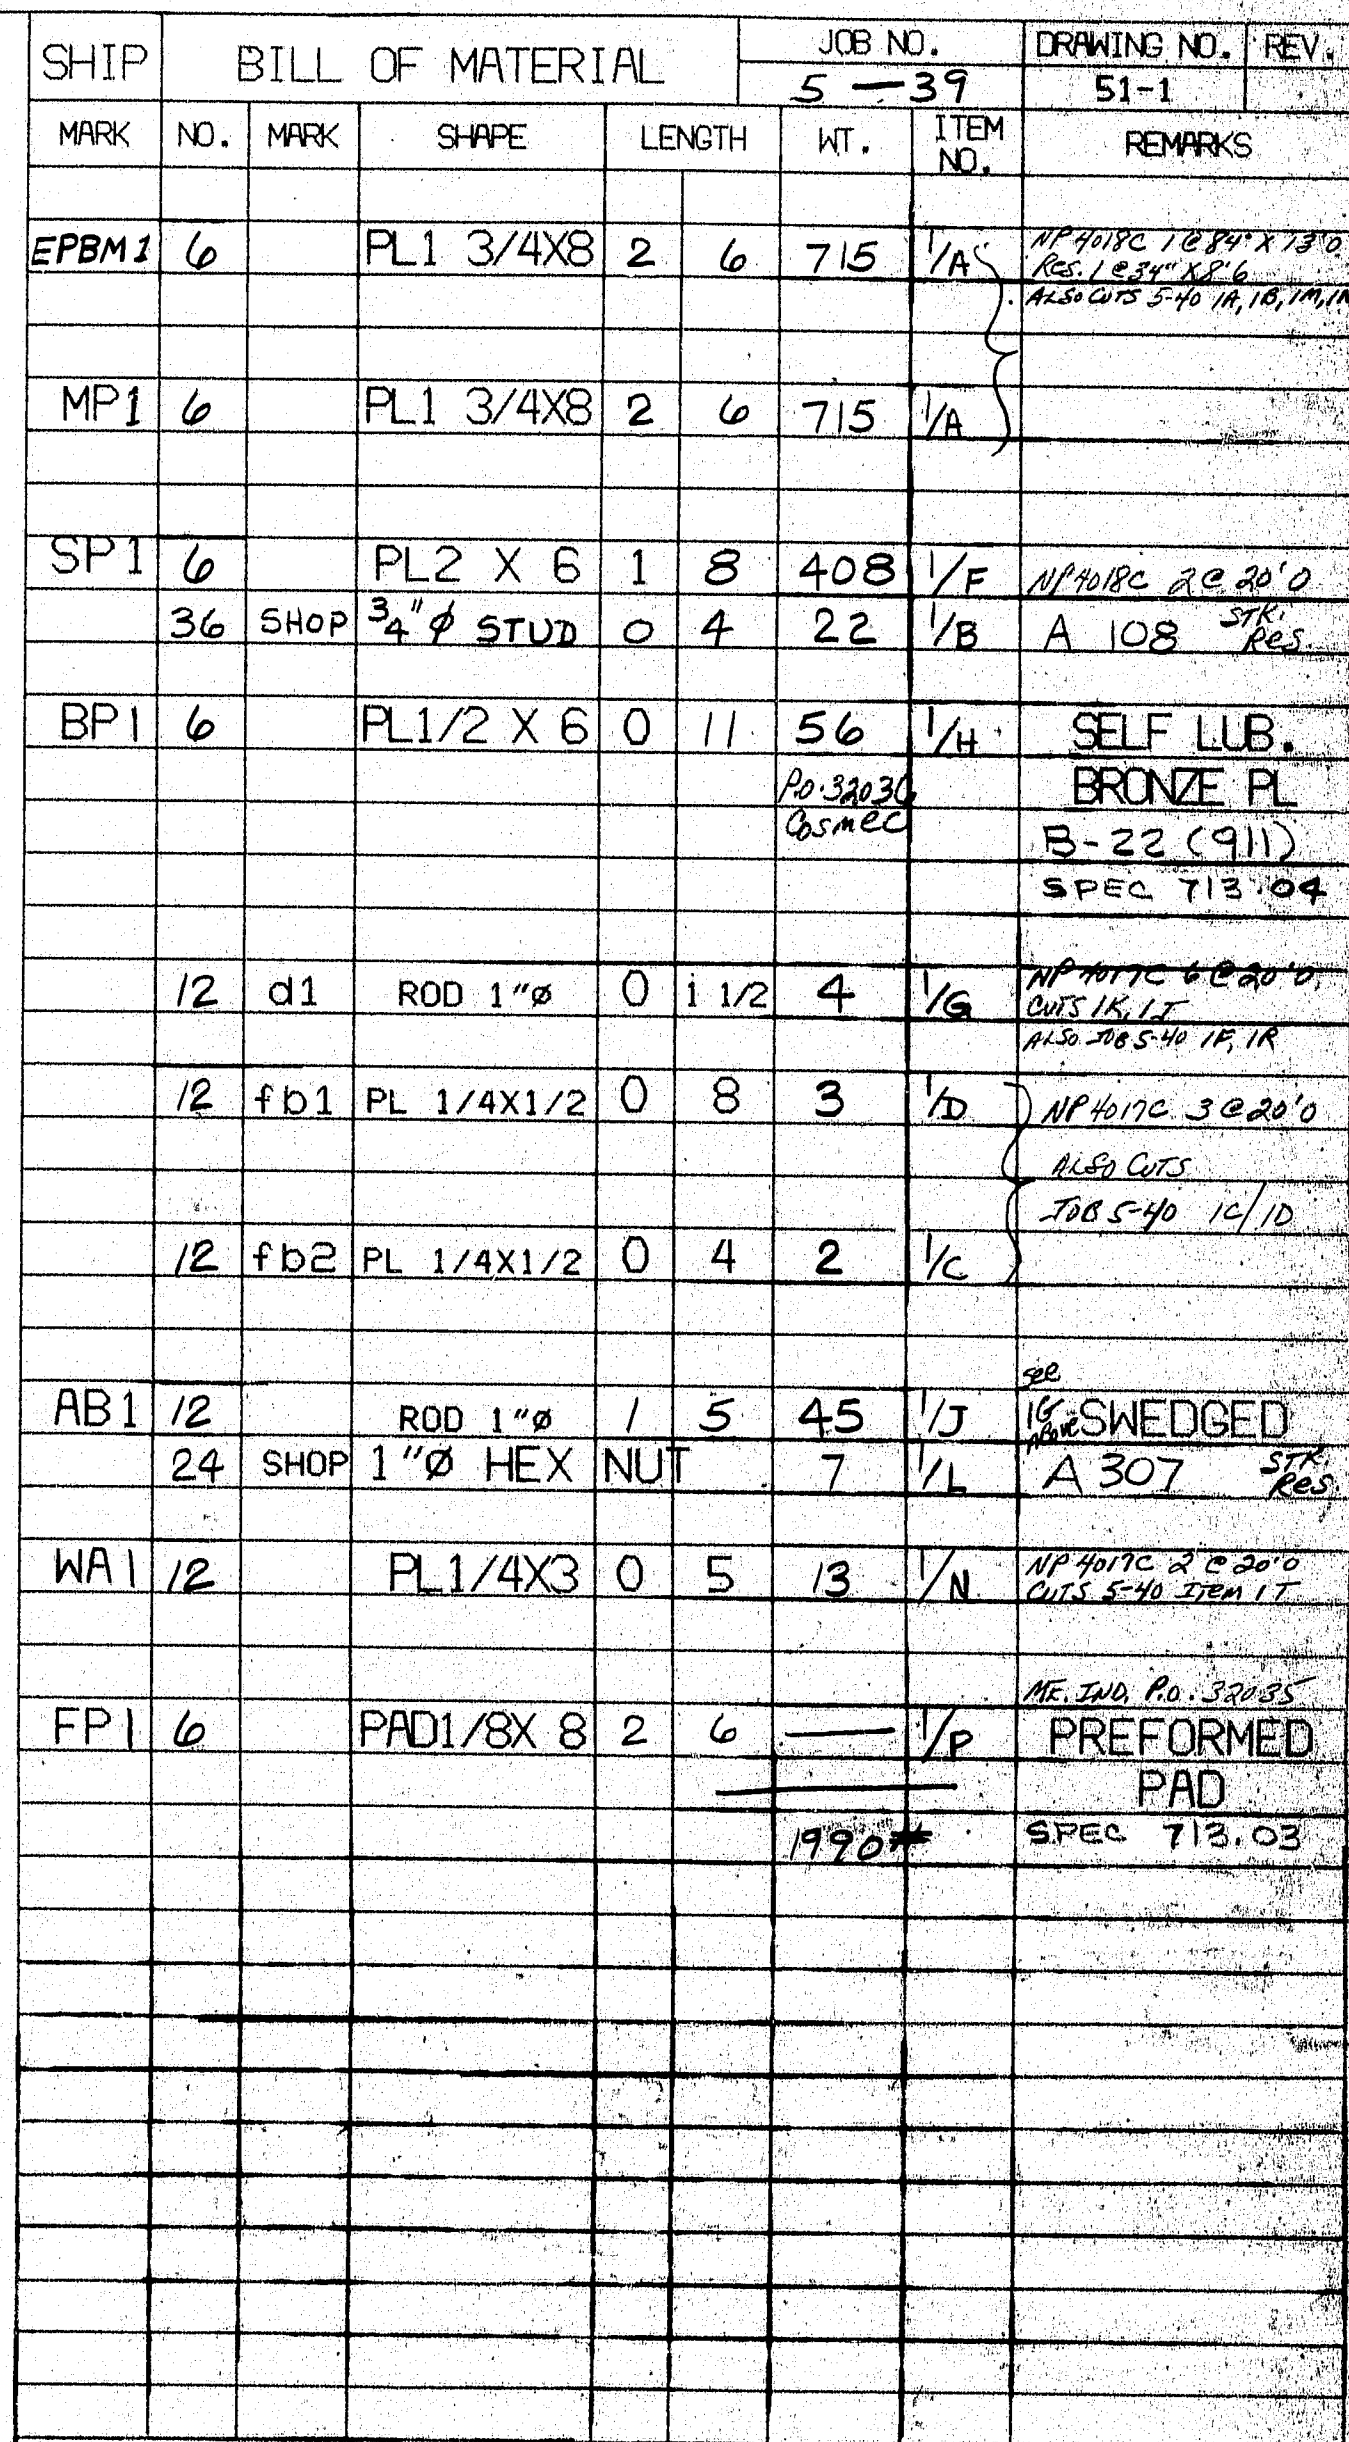 SHIP BILL OF MATERIAL JOB NO. DRAWING NO. REV.
5 - 39 51-1
MARK NO. MARK SHAPE LENGTH WT. ITEM NO. REMARKS
EPBM1 6 PL1 3/4X8 2 6 715 1/A NP4018C 1@84"X13'0
RES. 1@34"X8'6
ALSO CUTS 5-40 1A, 1B, 1M, 1N
MP1 6 PL1 3/4X8 2 6 715 1/A
SP1 6 PL2 X 6 1 8 408 1/F NP4018C 2@20'0
36 SHOP 3/4"ø STUD 0 4 22 1/B A 108 STK. Res.
BP1 6 PL1/2 X 6 0 11 56 1/H SELF LUB.
P.O. 32036 BRONZE PL
Cosmec B-22 (911)
SPEC 713.04
12 d1 ROD 1"ø 0 1 1/2 4 1/G NP 4017C 6@20'0
CUTS 1K, 1J
ALSO JOB 5-40 1F, 1R
12 fb1 PL 1/4X1/2 0 8 3 1/D NP4017C 3@20'0
ALSO CUTS
JOB 5-40 1C/1D
12 fb2 PL 1/4X1/2 0 4 2 1/C
AB1 12 ROD 1"ø 1 5 45 1/J see 1G Above SWEDGED
24 SHOP 1"Ø HEX NUT 7 1/L A 307 STK. Res.
WA1 12 PL1/4X3 0 5 13 1/N NP4017C 2@20'0
CUTS 5-40 ITem 1T
MF. IND. P.O. 32035
FP1 6 PAD1/8X 8 2 6 — 1/P PREFORMED
PAD
1990# SPEC 713.03